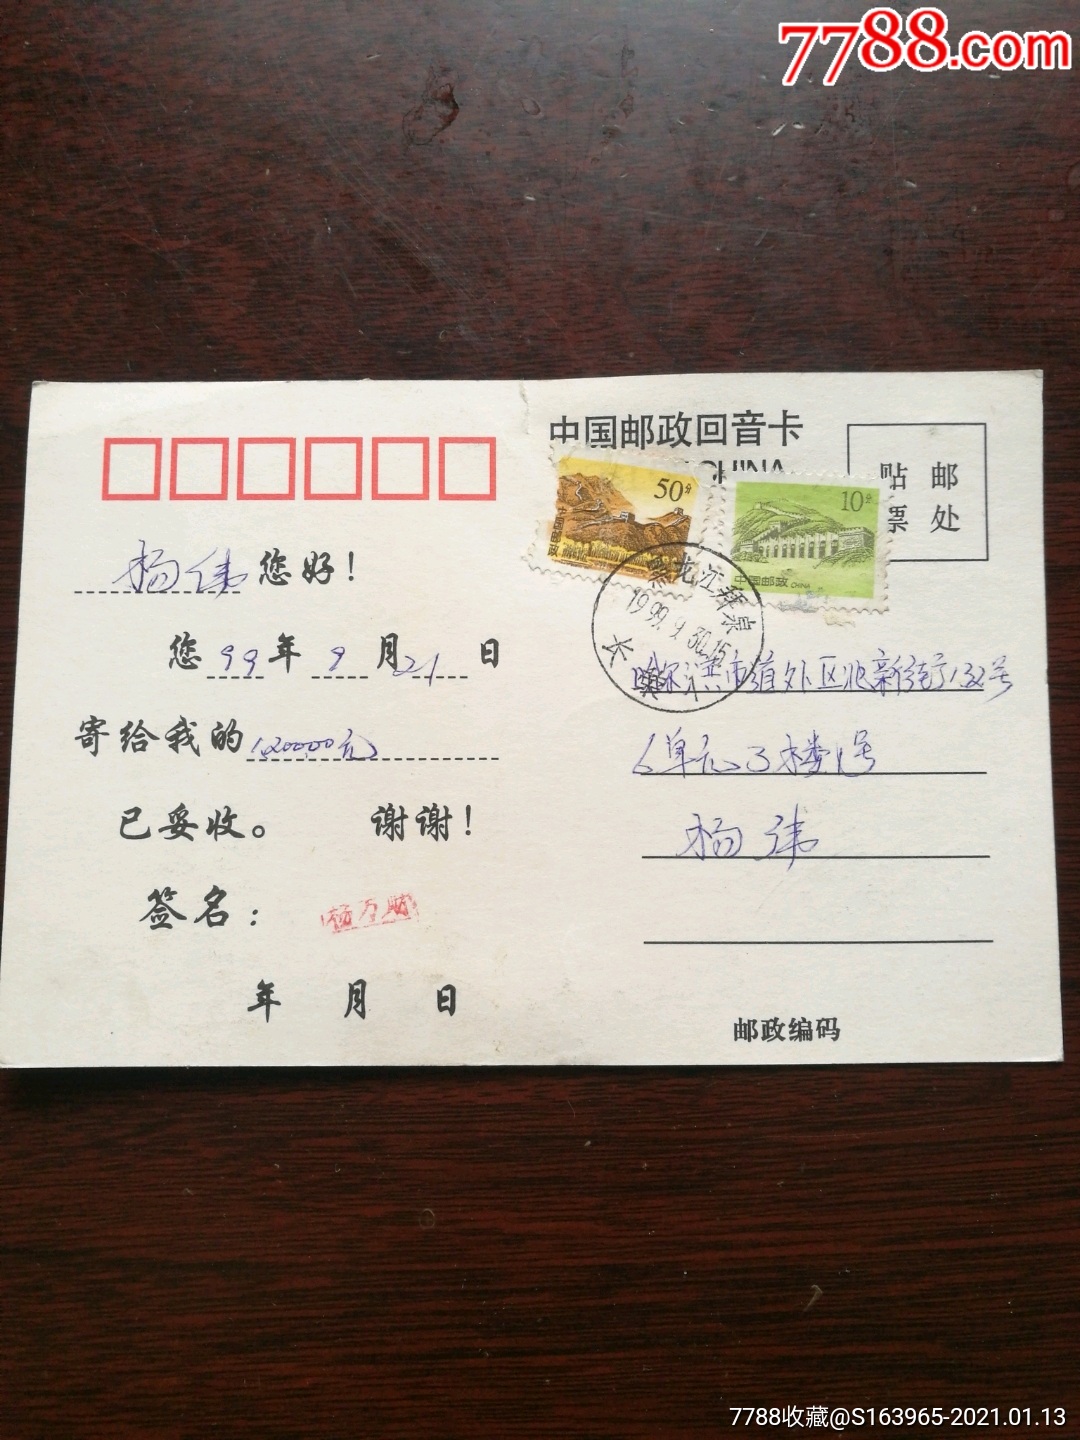 7788.com
中国邮政回音卡
CHINA
贴 邮
票 处
50分
中国邮政
10分
中国邮政 CHINA
黑龙江拜泉
1999.9.30.15
长
杨伟 您好!
您 99 年 9 月 21 日
寄给我的 1200.00元
已妥收。 谢谢!
签名: 杨万财
年 月 日
哈尔滨市道外区北新街
单元3楼1号
杨伟
邮政编码
7788收藏@S163965-2021.01.13